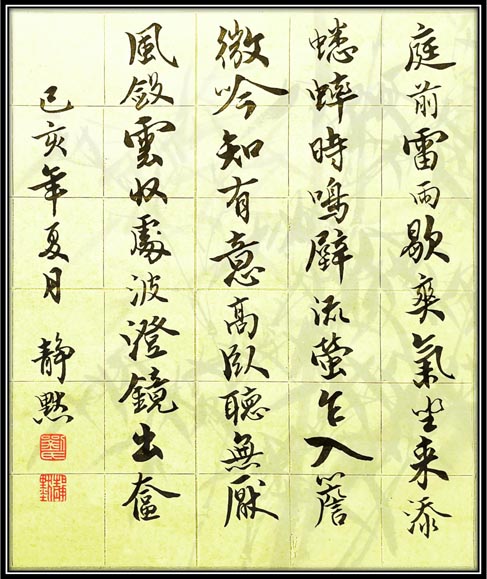 庭前雷雨歇爽氣坐来添
蟋蟀時鳴壁流螢乍入簷
微吟知有意高臥聽無厭
風斂雲收處波澄鏡出奩
己亥年夏月 静默